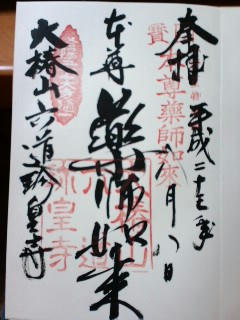 奉拝
平成二十三年
八月八日
本尊
薬師如来
大椿山六道珍皇寺
本尊薬師如来